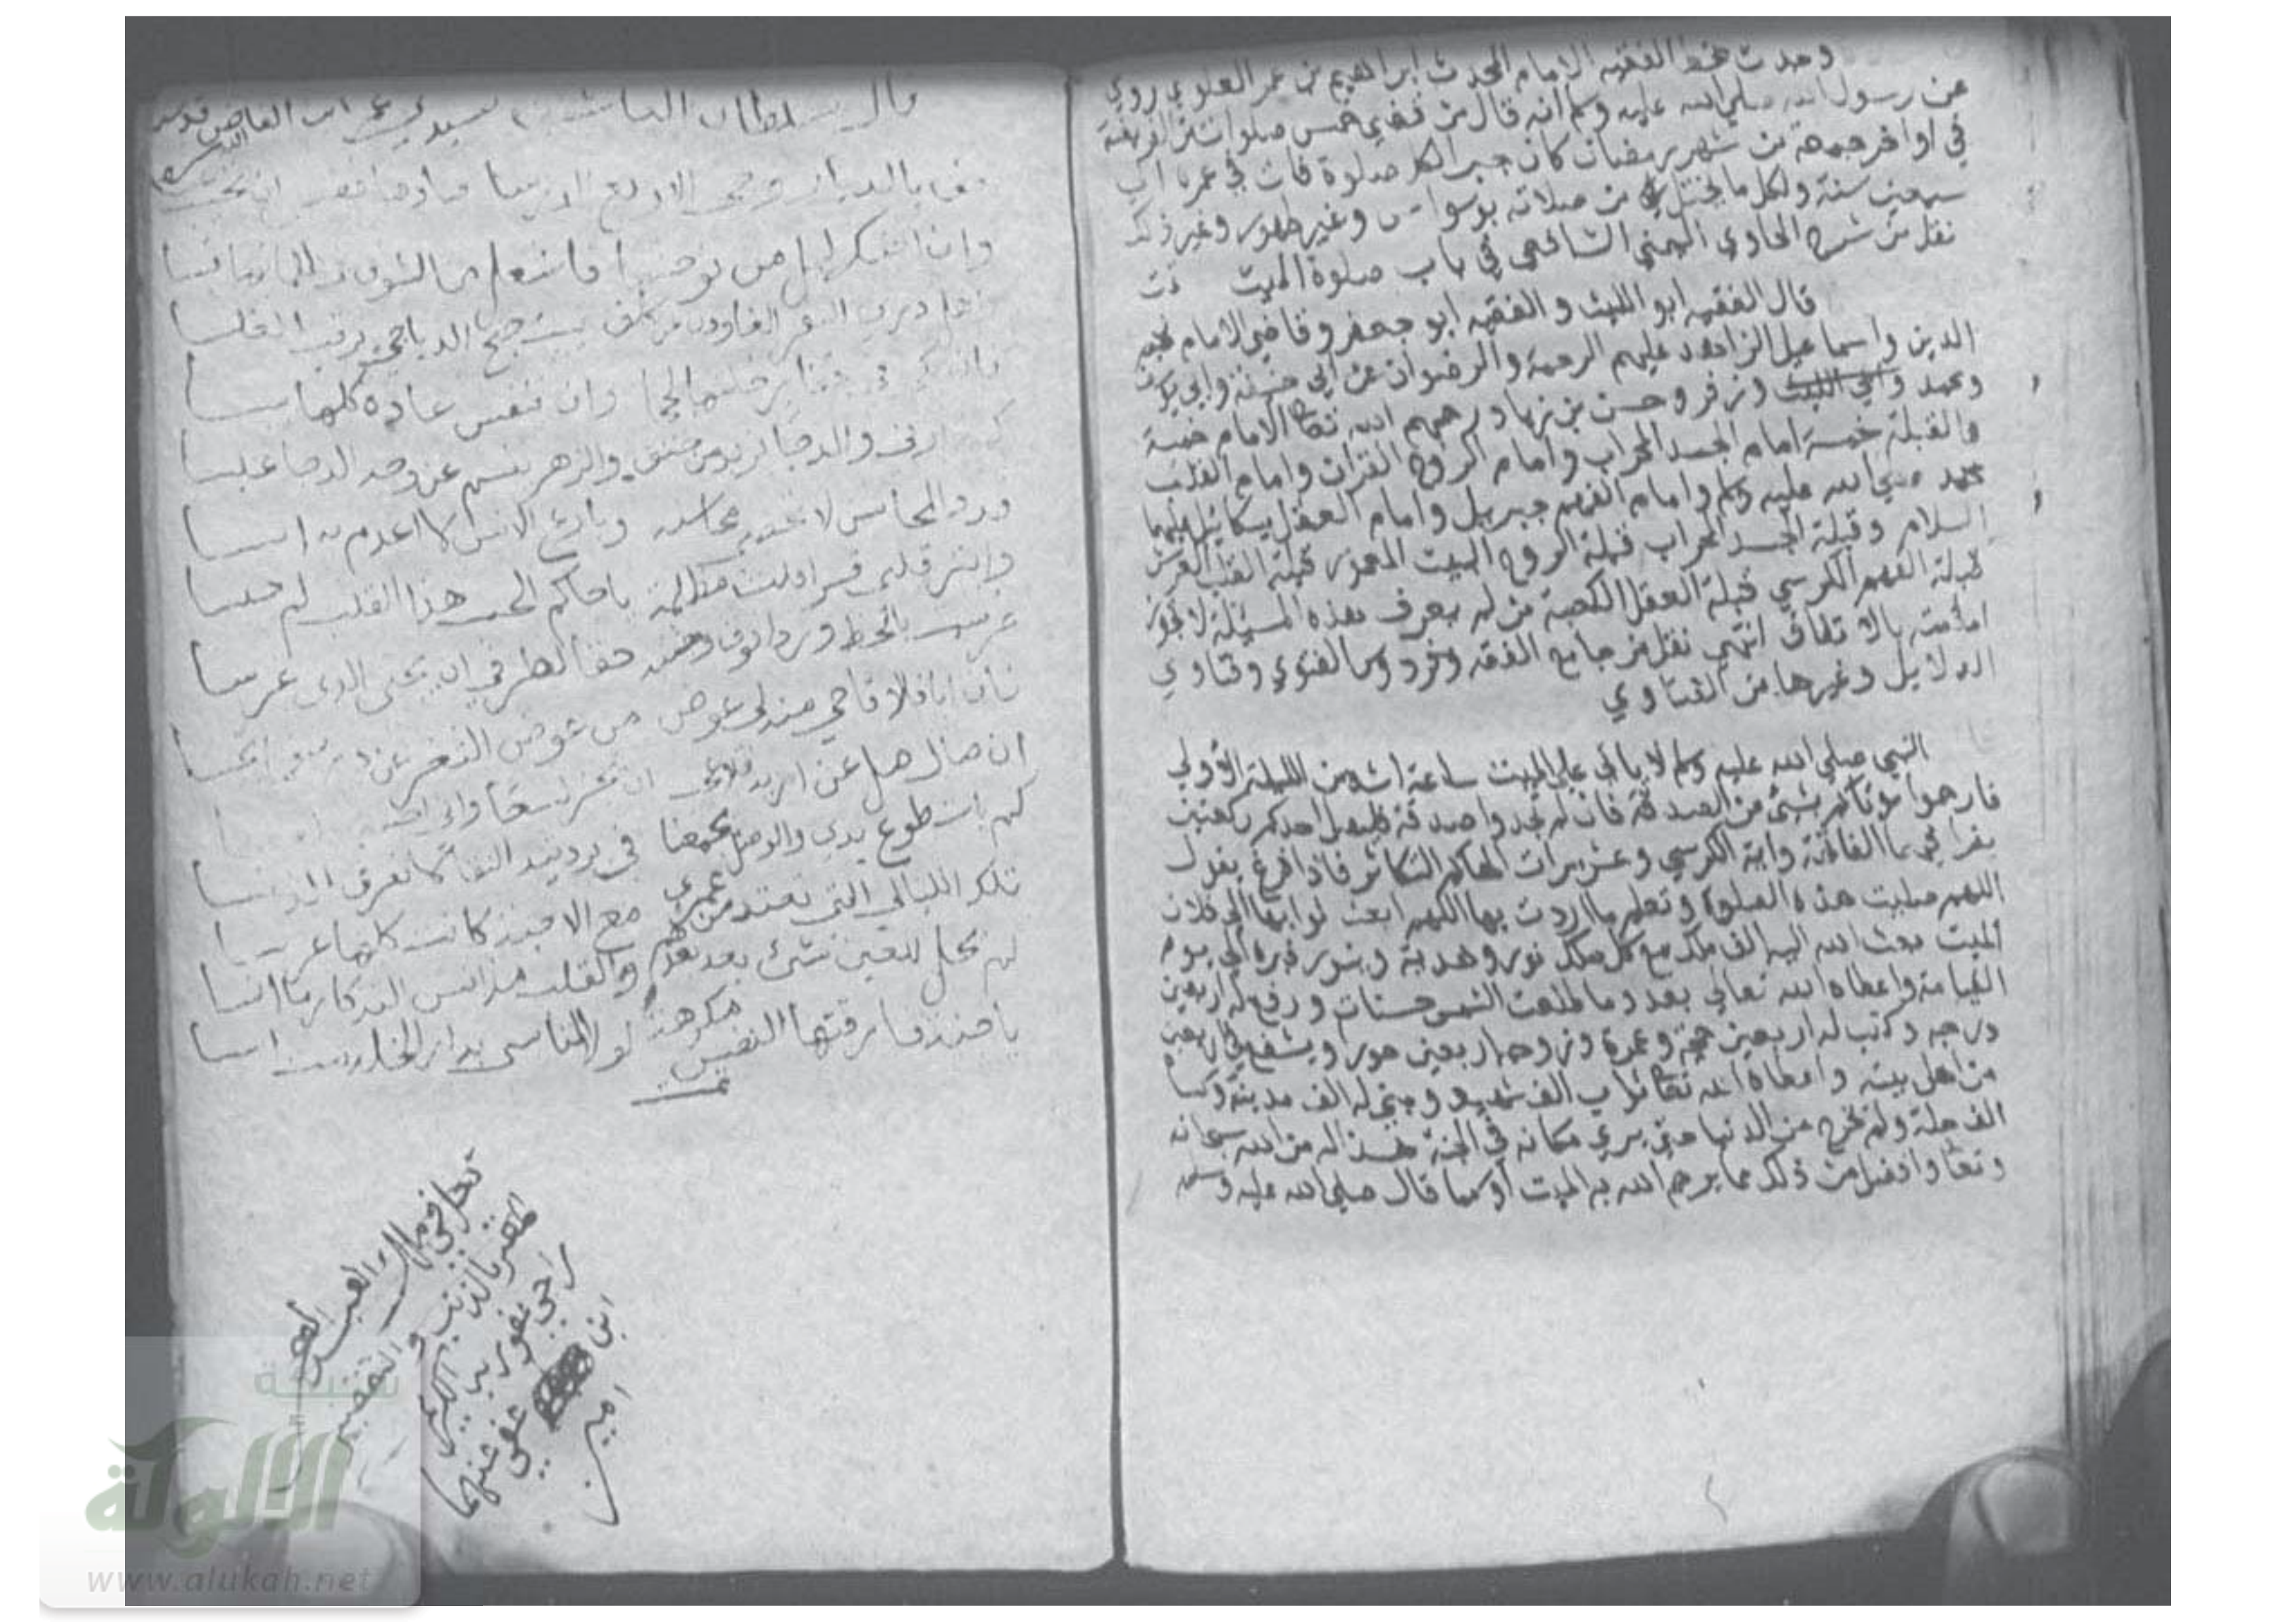 وجدت بخط الفقيه الامام المحدث ابراهيم بن عمر العلوي روي
عن رسول الله صلي الله عليه وسلم انه قال من قضي خمس صلوات من الفريضة
في اواخر جمعة من شهر رمضان كان جبرا لكل صلوة فات في عمره الي
سبعين سنة ولكل ما يختل من صلاته بوسواس وغير طهور وغير ذلك
نقل من شرح الحاوي اليمني الشافعي في باب صلوة الميت
قال الفقيه ابو الليث و الفقيه ابو جعفر وقاضي الامام نجم
الدين واسماعيل الزاهد عليهم الرحمة والرضوان عن ابي حنيفة وابي يوسف
ومحمد وابي الليث وزفر وحسن بن زياد رحمهم الله تعا الامام خمسة
والقبلة خمسة امام الجسد المحراب وامام الروح القران وامام القلب
محمد صلي الله عليه وسلم وامام الفهم جبريل وامام العقل ميكائيل عليهما
السلام وقبلة الجسد المحراب قبلة الروح البيت المعمور قبلة القلب العرش
قبلة الفهم الكرسي قبلة العقل الكعبة من لم يعرف هذه المسئلة لا تجوز
امامته بالاتفاق انتهي نقل من جامع الفقه وفتاوي
الدلايل وغيرها من الفتاوي
النبي صلي الله عليه وسلم لا ياتي علي الميت ساعة اشد من الليلة الاولي
فارحموا موتاكم بشيئ من الصدقة فان لم تجدوا صدقة فليصل احدكم ركعتين
يقرا فيهما الفاتحة واية الكرسي وعشر مرات الهاكم التكاثر فاذا فرغ يقول
اللهم صليت هذه الصلوة وتعلم ما اردت بها اللهم ابعث ثوابها الي فلان
الميت بعث الله اليه الف ملك مع كل ملك نور وهدية وينور قبره الي يوم
القيامة واعطاه الله تعالي بعدد ما طلعت الشمس حسنات ورفع له اربعين
درجه وكتب له اربعين حجة وعمرة وزوجه اربعين حورا ويشفع في اربعين
من اهل بيته واعطاه الله تعا ثواب الف شهيد وبني له الف مدينة وكساه
الف حلة ولم يخرج من الدنيا حتي يري مكانه في الجنة هذا له من الله سبحانه
وتعا وافضل من ذلك مما يرحم الله به الميت او كما قال صلي الله عليه وسلم
قال سلطان العاشقين سيدي عمر ابن الفارض قدس
الله سره
قف بالديار وحي الاربع الدرسا ونادها فعسى ان تجيب عسى
وان اجنك ليل من توحشها فاشعل من الشوق في ظلمائها قبسا
يا هل درى النفر الغادون عن كلف يبيت جنح الدياجي يرقب الغلسا
فان بكى في قفار خلتها لججا وان تنفس عادت كلها يبسا
والزهر تبسم عن وجه الدجا عبسا
فذو المحاسن لا تحصى محاسنه وبارع الانس لا اعدم به انسا
وابتز قلبي قسرا قلت مظلمة يا حاكم الحب هذا القلب لم حبسا
غرست باللحظ وردا فوق وجنته حقا لطرفي ان يجني الذي غرسا
فان ابى فالاقاحي منه لي عوض من عوض الثغر عن در فما بخسا
ان صال صل عن اريد فلا
كم بات طوع يدي والوصل يجمعنا في بردتيه التقا لا نعرف الدنسا
تلك الليالي التي تعتد من عمري مع الاحبة كانت كلها عرسا
لم يحل للعين شيئ بعد بعدهم والقلب مذ انس التذكار ما انسا
يا جنة فارقتها النفس مكرهة لولا التاسي بدار الخلد مت اسا
تمت
دخل في ملك العبد
المقر بالذنب والتقصير
راجي عفو ربه الكريم
ابن عفي عنهما
امين
شبكة
الألوكة
www.alukah.net